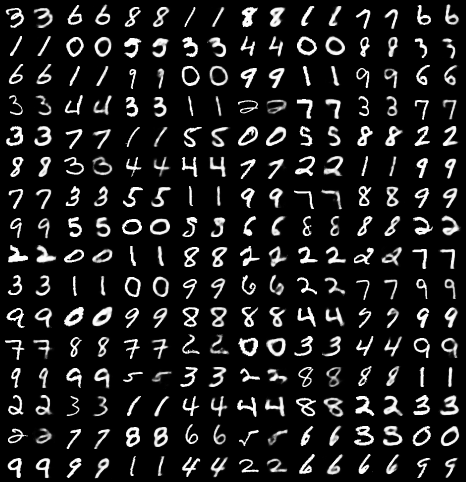 3 3 6 6 8 8 1 1 8 8 1 1 7 7 6 6
1 1 0 0 5 5 3 3 4 4 0 0 8 8 3 3
6 6 1 1 9 9 0 0 9 9 1 1 9 9 6 6
3 3 4 4 3 3 1 1 2 2 7 7 3 3 7 7
3 3 7 7 1 1 5 5 0 0 5 5 8 8 2 2
8 8 3 3 4 4 4 4 7 7 2 2 1 1 9 9
7 7 3 3 5 5 1 1 9 9 7 7 8 8 9 9
9 9 5 5 0 0 5 5 6 6 8 8 8 8 2 2
2 2 0 0 1 1 8 8 2 2 2 2 2 2 7 7
3 3 1 1 0 0 9 9 6 6 2 2 7 7 9 9
9 9 0 0 9 9 8 8 8 8 4 4 9 9 9 9
7 7 8 8 7 7 2 2 0 0 3 3 4 4 9 9
9 9 9 9 5 5 3 3 2 2 8 8 8 8 1 1
2 2 3 3 1 1 4 4 4 4 8 8 2 2 3 3
2 2 7 7 8 8 6 6 5 5 6 6 3 3 0 0
9 9 9 9 1 1 4 4 2 2 6 6 6 6 9 9